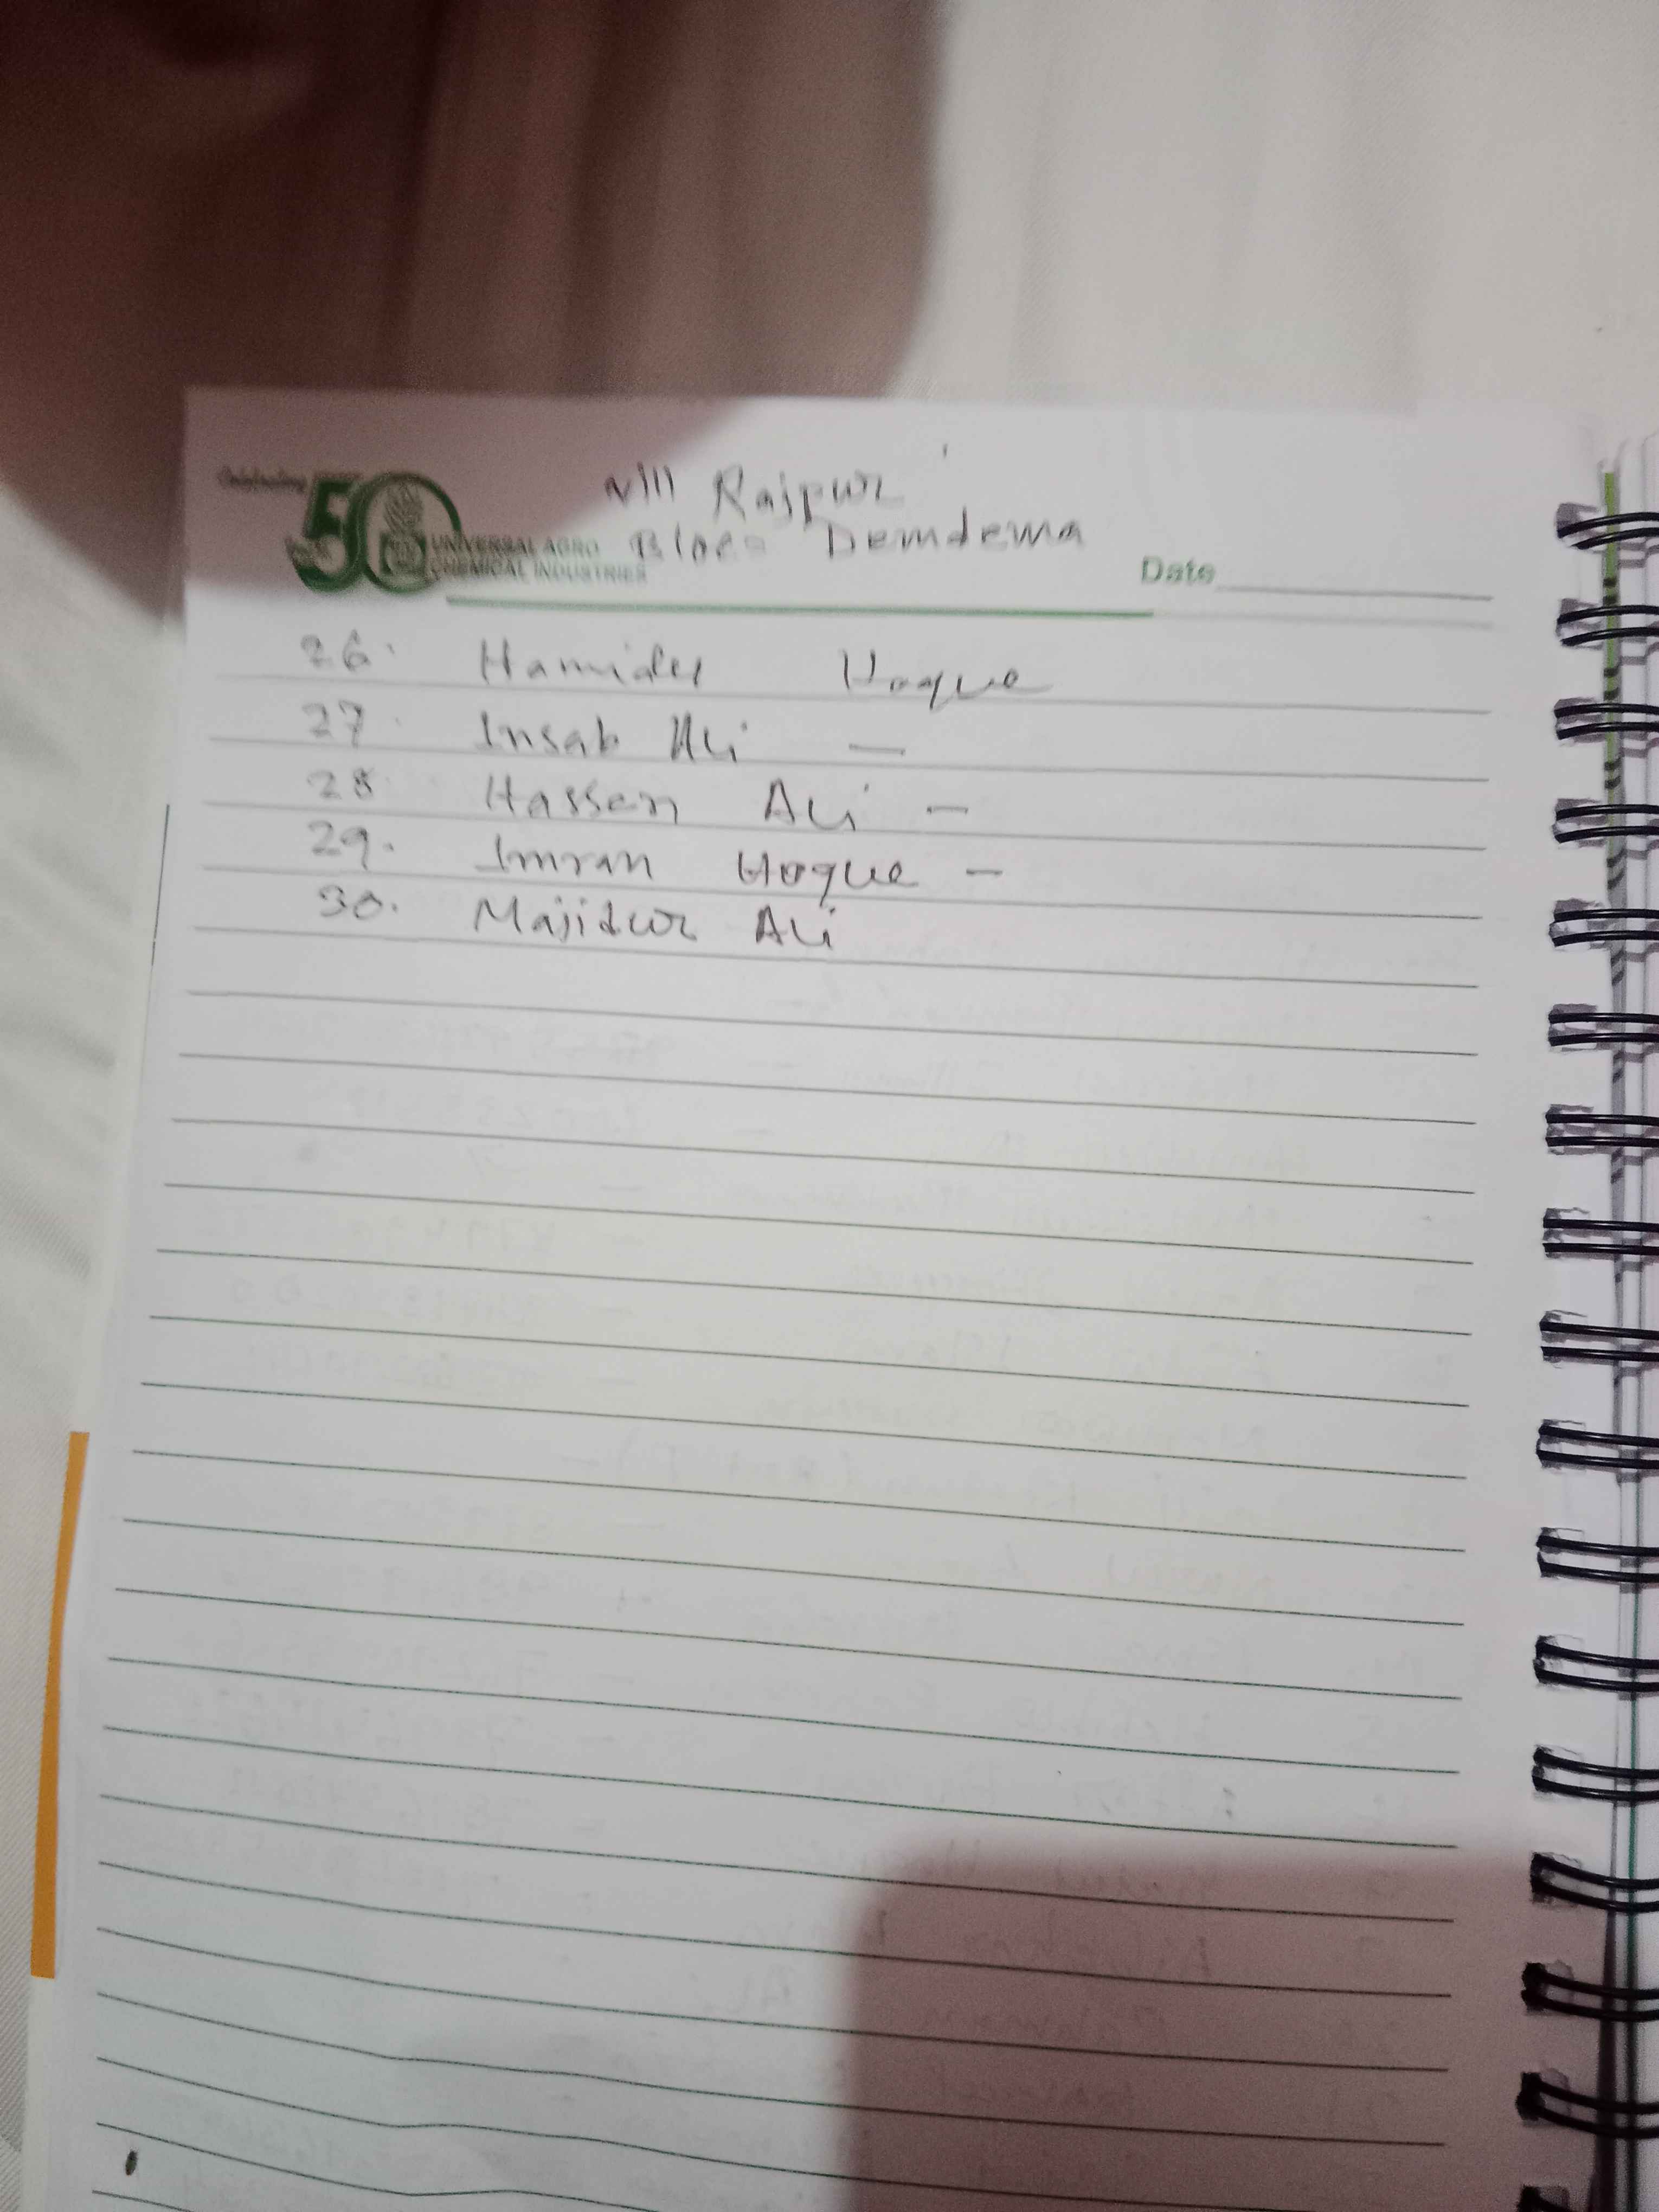 Celebrating
50
vill Rajpur
UNIVERSAL AGRO
CHEMICAL INDUSTRIES
Block Demdema
Date
26. Hamidul Hoque
27. Insab Ali —
28. Hassen Ali —
29. Imran Hoque —
30. Majidur Ali